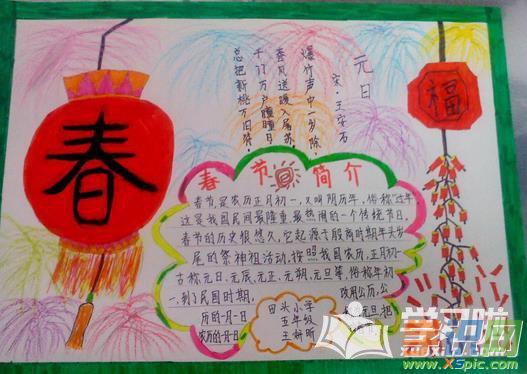 元日
宋·王安石
爆竹声中一岁除,
春风送暖入屠苏。
千门万户曈曈日
总把新桃万旧符。
春
福
春节简介
春节是农历正月初一,又叫阴历年,俗称"过年
这是我国民间最隆重、最热闹的一个传统节日,
春节的历史很悠久,它起源于殷商时期年头岁
尾的祭神祖活动,按照我国农历,正月初一
古称元日、元辰、元正、元朔、元旦等,俗称年初
一,到了民国时期, 改用公历,公
历的一月一日 元旦把
农历的一月一日
田头小学
五年级
王妍昕
学识网
www.XSpic.com